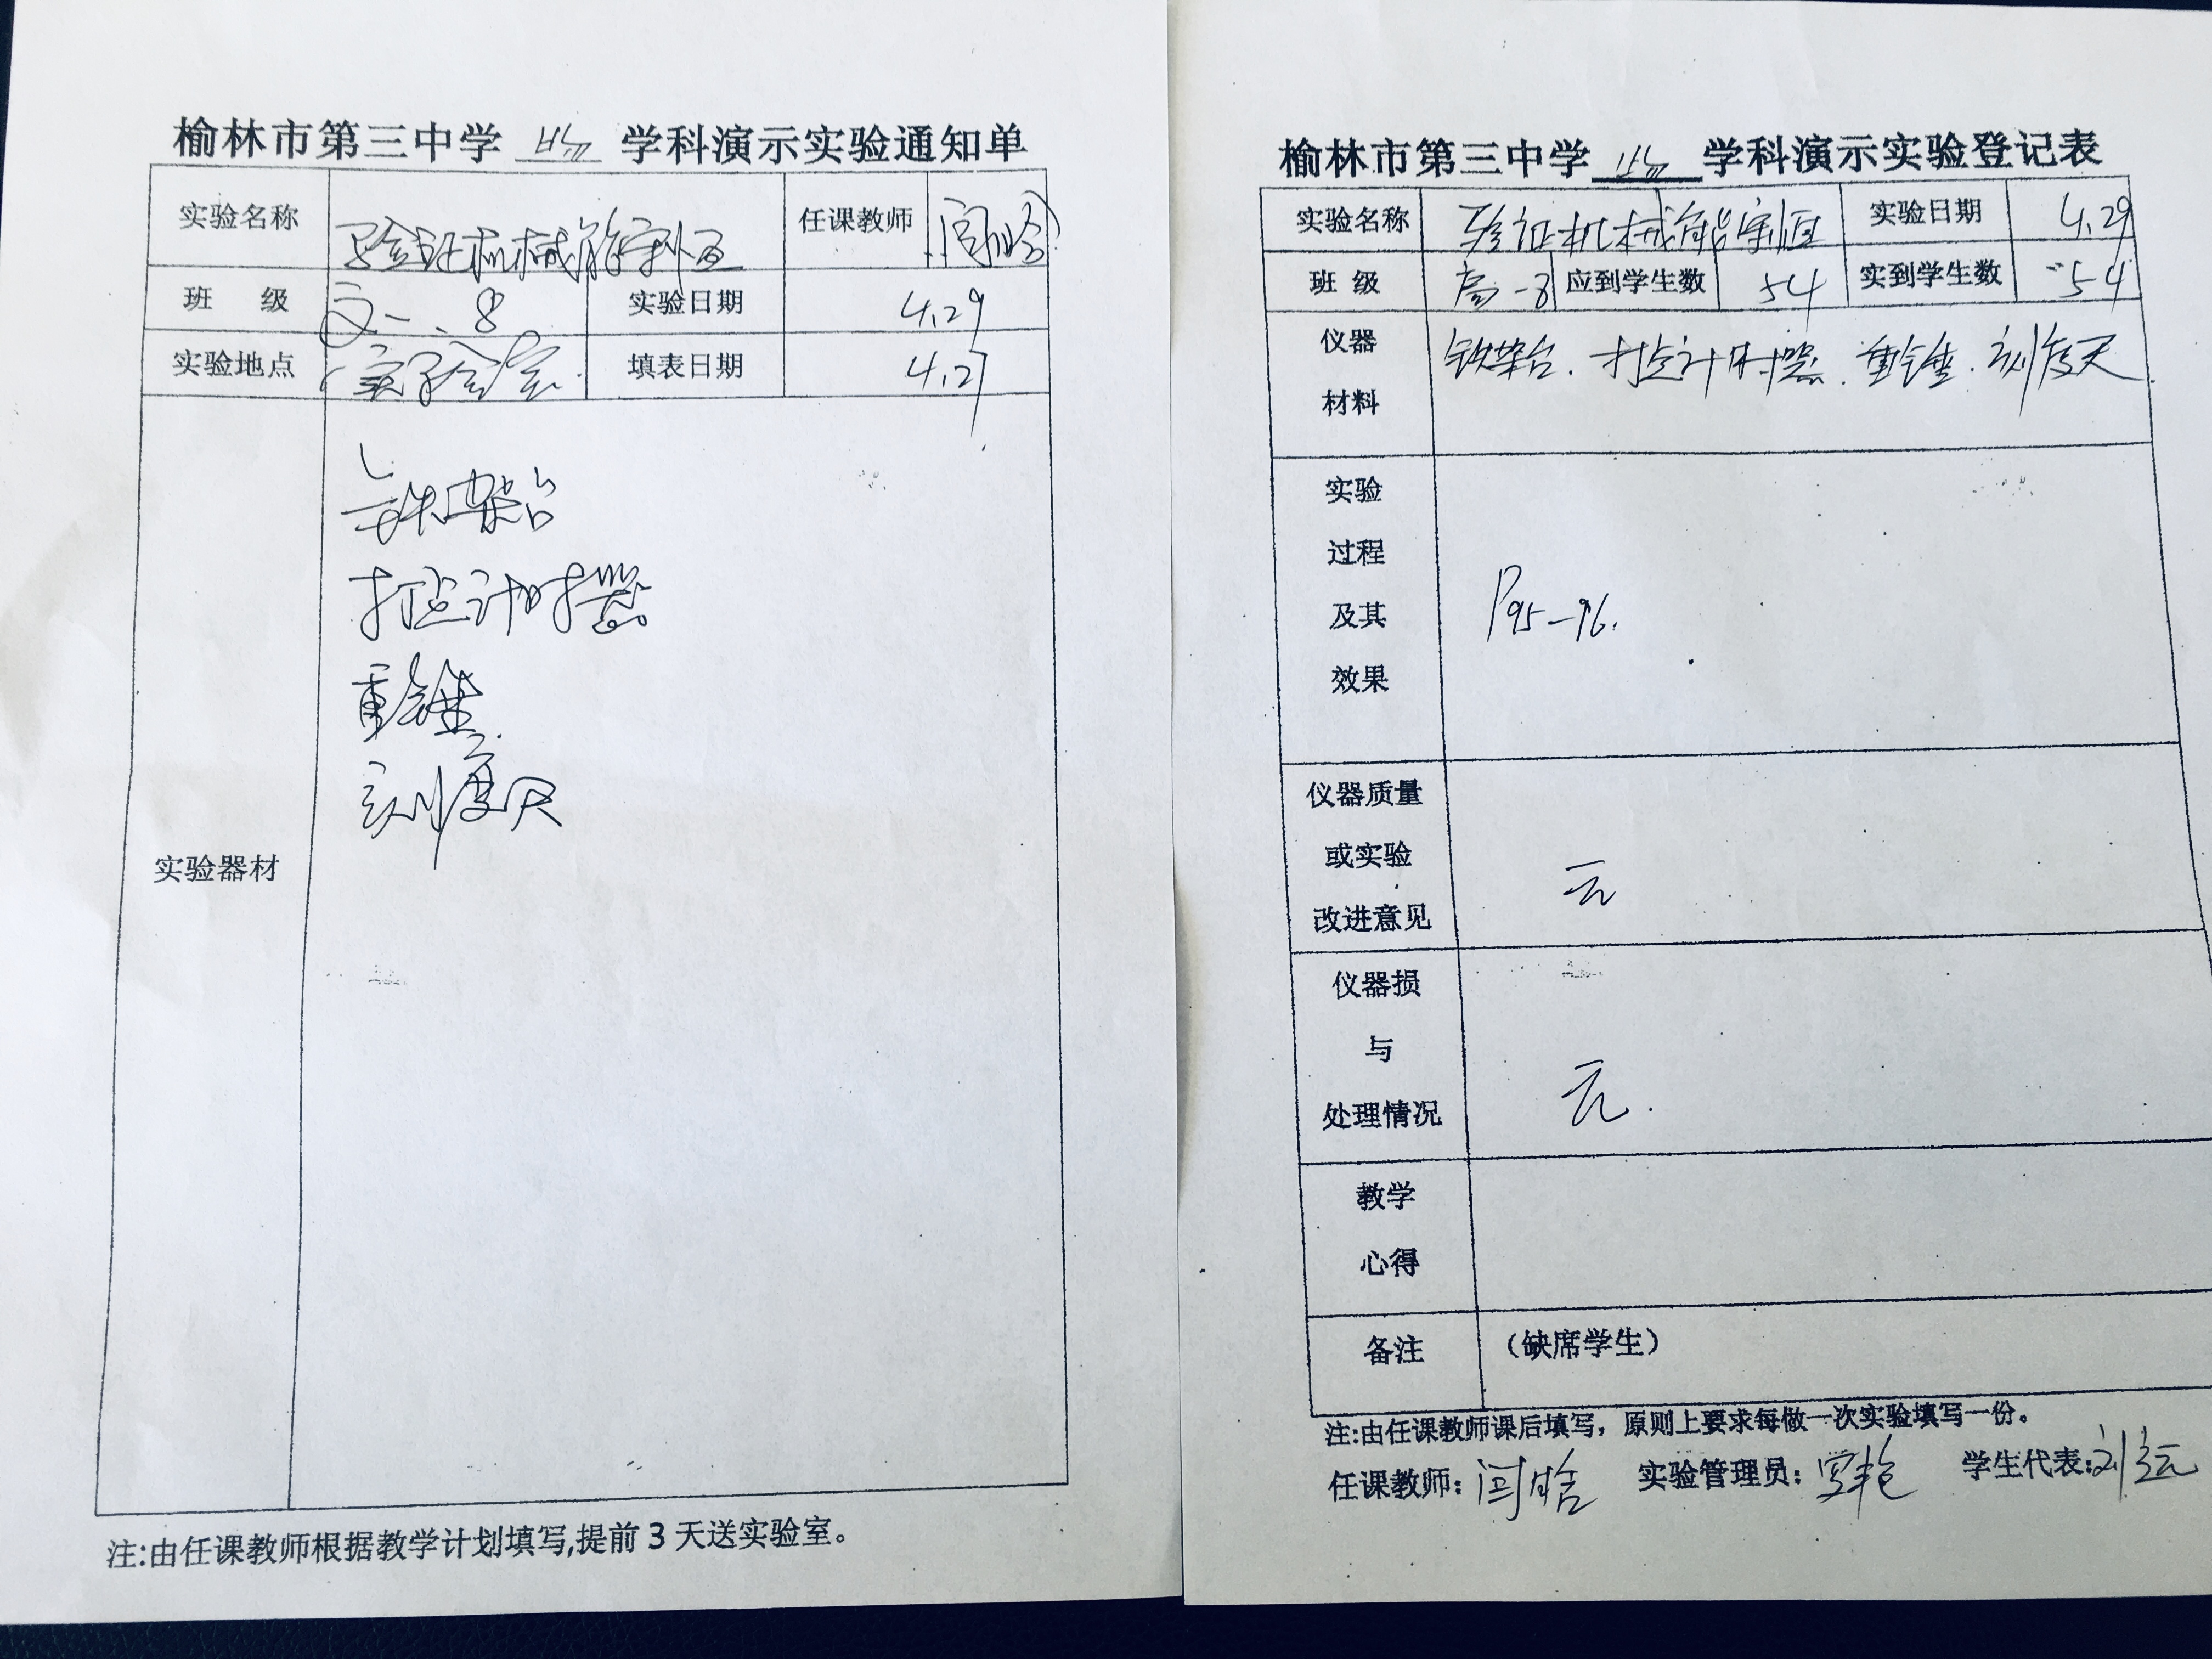 榆林市第三中学 物理 学科演示实验通知单
实验名称 验证机械能守恒 任课教师 闫晗
班 级 高一、8 实验日期 4.29
实验地点 实验室 填表日期 4.27
实验器材
铁架台
打点计时器
重锤
刻度尺
注:由任课教师根据教学计划填写,提前3天送实验室。
榆林市第三中学 物理 学科演示实验登记表
实验名称 验证机械能守恒 实验日期 4.29
班 级 高一8 应到学生数 54 实到学生数 54
仪器
材料
铁架台.打点计时器.重锤.刻度尺.
实验
过程
及其
效果
P95-96.
仪器质量
或实验
改进意见
无
仪器损
与
处理情况
无.
教学
心得
备注 (缺席学生)
注:由任课教师课后填写，原则上要求每做一次实验填写一份。
任课教师: 闫晗 实验管理员: 学生代表:刘